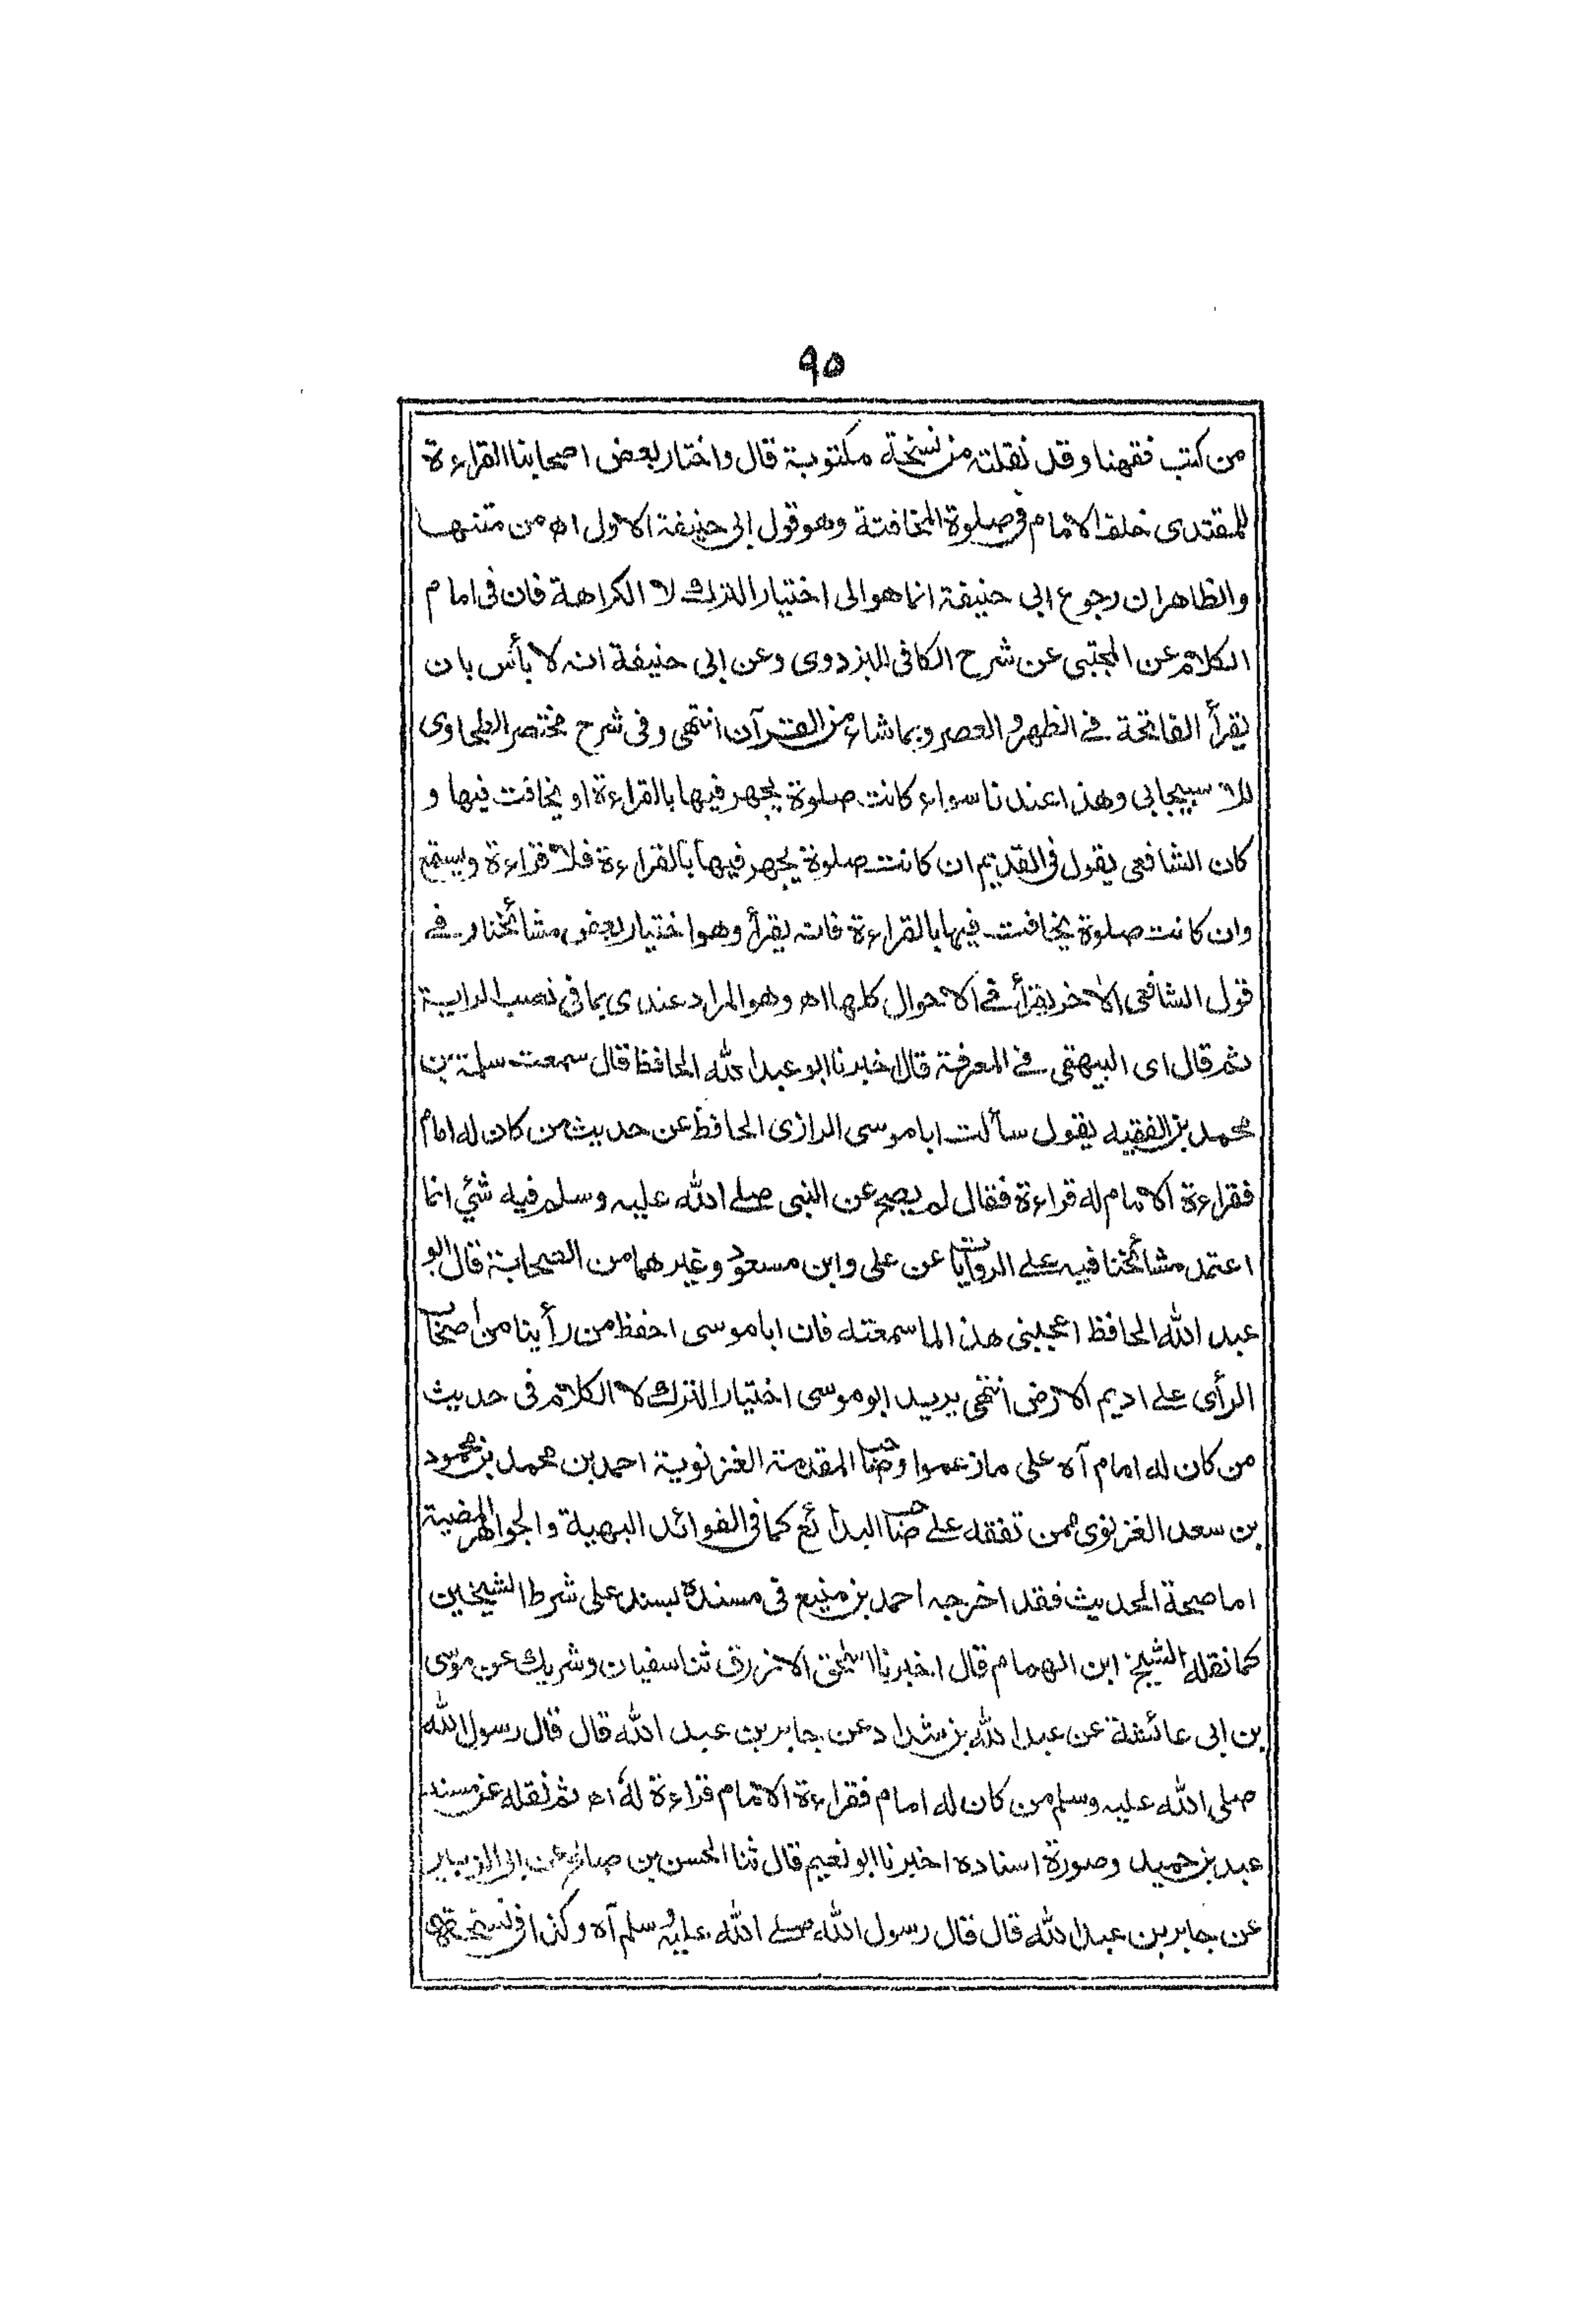 ٩٥
من كتب فقهنا وقد نقلته من نسخة مكتوبة قال واختار بعض اصحابنا القراءة
للمقتدى خلف الامام فى صلوة المخافتة وهو قول ابى حنيفة الاول اه من متنها
والظاهر ان رجوع ابى حنيفة انما هو الى اختيار الترك لا الكراهة فان فى امام
الكلام عن المجتبى عن شرح الكافى للبزدوى وعن ابى حنيفة انه لا بأس بان
يقرأ الفاتحة فے الظهر والعصر وبما شاء من القرآن انتهى وفى شرح مختصر الطحاوى
للاسبيجابى وهذا عندنا سواء كانت صلوة يجهر فيها بالقراءة او يخافت فيها و
كان الشافعى يقول فى القديم ان كانت صلوة يجهر فيها بالقراءة فلا قراءة ويستمع
وان كانت صلوة يخافت فيها بالقراءة فانه يقرأ وهو اختيار بعض مشائخنا وفے
قول الشافعى الاٰخر يقرأ فے الاحوال كلها اه وهو المراد عندى بما فى نصب الراية
ثم قال اى البيهقى فے المعرفة قال اخبرنا ابو عبد الله الحافظ قال سمعت سلمة بن
محمد بن الفقيه يقول سألت ابا موسى الرازى الحافظ عن حديث من كان له امام
فقراءة الامام له قراءة فقال لم يصح عن النبى صلے الله عليه وسلم فيه شئي انما
اعتمد مشائخنا فيه علے الروايات عن على وابن مسعود وغيرهما من الصحابة قال ابو
عبد الله الحافظ اعجبنى هذا لما سمعته فان ابا موسى احفظ من رأينا من اصحاب
الرأى علے اديم الارض انتهى يريد ابو موسى اختيار الترك لا الكلام فى حديث
من كان له امام آه على ما زعموا وصاحب المقدمة الغزنوية احمد بن محمد بن محمود
بن سعد الغزنوى ممن تفقه علے صاحب البدائع كما فى الفوائد البهية والجواهر المضية
اما صحة الحديث فقد اخرجه احمد بن منيع فى مسنده بسند على شرط الشيخين
كما نقله الشيخ ابن الهمام قال اخبرنا اسحٰق الازرق ثنا سفيان وشريك عن موسى
بن ابى عائشة عن عبد الله بن شداد عن جابر بن عبد الله قال قال رسول الله
صلى الله عليه وسلم من كان له امام فقراءة الامام قراءة له اه ثم نقله عن مسند
عبد بن حميد وصورة اسناده اخبرنا ابو نعيم قال ثنا الحسن بن صالح عن ابى الزبير
عن جابر بن عبد الله قال قال رسول الله صلے الله عليه وسلم آه وكذا فى نسخة